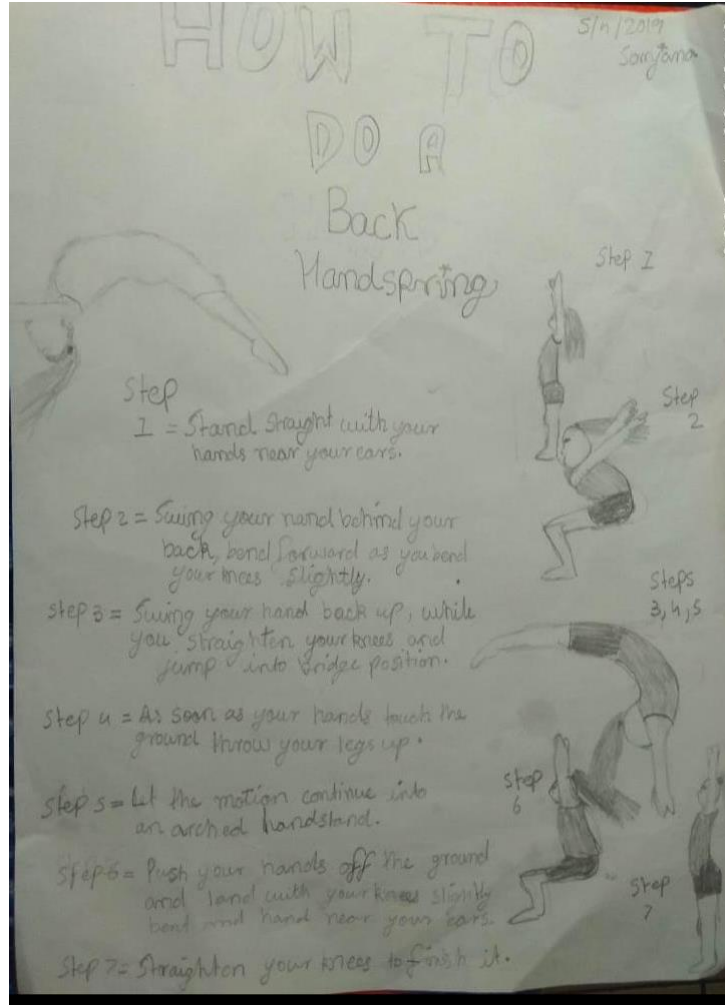 HOW TO
5/4/2019
DO A
Back
Handspring
Step 1
Step
2
Step
1 = Stand straight with your
hands near your ears.
Step 2 = Swing your hand behind your
back, bend forward as you bend
your knees slightly.
Steps
3, 4, 5
Step 3 = Swing your hand back up, while
you straighten your knees and
jump into bridge position.
Step 4 = As soon as your hands touch the
ground throw your legs up.
Step 5 = Let the motion continue into
an arched handstand.
Step
6
Step 6 = Push your hands off the ground
and land with your knees slightly
bent and hand near your ears.
Step
7
Step 7 = Straighten your knees to finish it.